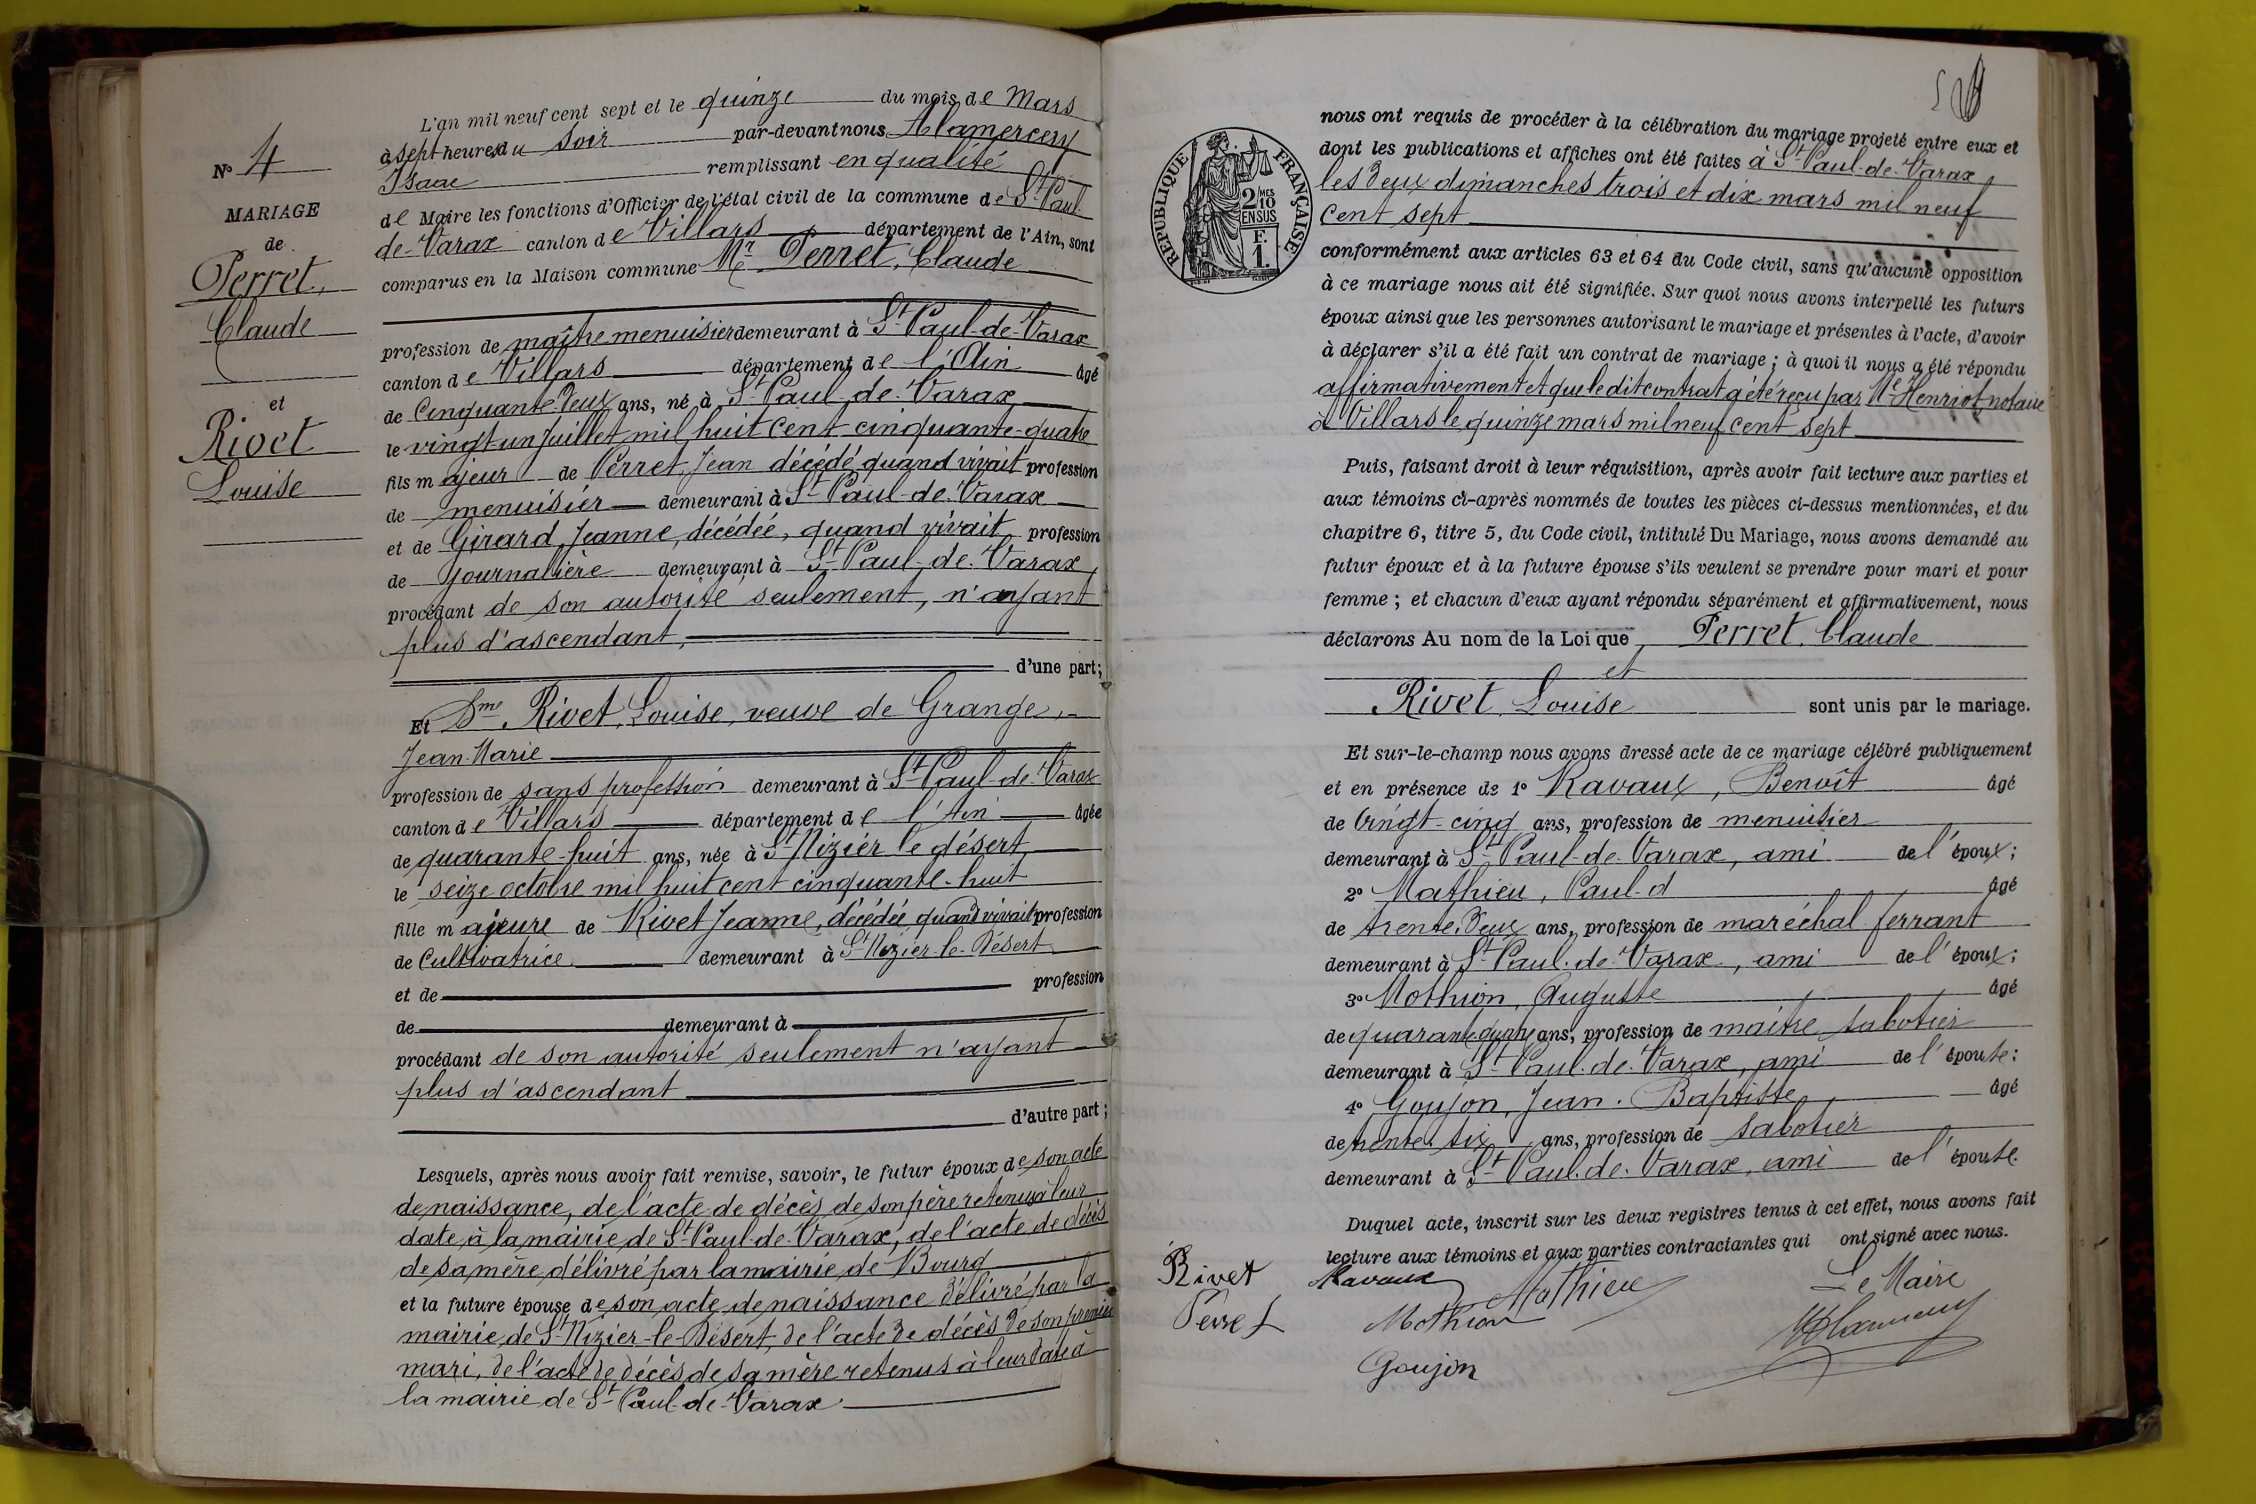 N° 4
MARIAGE
de
Perret,
Claude
et
Rivet
Louise
L'an mil neuf cent sept et le quinze du mois de Mars
à sept heures du soir par-devant nous Alamercery
Isaac remplissant en qualité
de Maire les fonctions d'Officier de l'état civil de la commune de St Paul-
de-Varax canton de Villars département de l'Ain, sont
comparus en la Maison commune Mr Perret, Claude
profession de maître menuisier demeurant à St Paul-de-Varax
canton de Villars département de l'Ain âgé
de Cinquante-deux ans, né à St Paul-de-Varax
le vingt-un Juillet mil huit cent cinquante-quatre
fils majeur de Perret, Jean décédé quand vivait profession
de menuisier demeurant à St Paul-de-Varax
et de Girard, Jeanne, décédée, quand vivait profession
de Journalière demeurant à St Paul-de-Varax,
procédant de son autorité seulement, n'ayant
plus d'ascendant,
d'une part;
Et Dme Rivet, Louise, veuve de Grange,
Jean-Marie
profession de sans profession demeurant à St Paul-de-Varax
canton de Villars département de l'Ain âgée
de quarante-huit ans, née à St Nizier le désert
le seize octobre mil huit cent cinquante-huit
fille majeure de Rivet Jeanne, décédée, quand vivait profession
de Cultivatrice demeurant à St Nizier-le-Désert
et de profession
de demeurant à
procédant de son autorité seulement n'ayant
plus d'ascendant
d'autre part;
Lesquels, après nous avoir fait remise, savoir, le futur époux de son acte
de naissance, de l'acte de décès de son père retenus à leur
date à la mairie de St Paul-de-Varax, de l'acte de décès
de sa mère, délivré par la mairie de Bourg
et la future épouse de son acte de naissance délivré par la
mairie de St Nizier-le-Désert, de l'acte de décès de son premier
mari, de l'acte de décès de sa mère retenus à leur date à
la mairie de St Paul-de-Varax
RÉPUBLIQUE FRANÇAISE
2 MES
10
EN SUS
F.
1.
nous ont requis de procéder à la célébration du mariage projeté entre eux et
dont les publications et affiches ont été faites à St Paul-de-Varax,
les deux dimanches trois et dix mars mil neuf
cent sept
conformément aux articles 63 et 64 du Code civil, sans qu'aucune opposition
à ce mariage nous ait été signifiée. Sur quoi nous avons interpellé les futurs
époux ainsi que les personnes autorisant le mariage et présentes à l'acte, d'avoir
à déclarer s'il a été fait un contrat de mariage; à quoi il nous a été répondu
affirmativement et que le dit contrat a été reçu par Me Henriot, notaire
à Villars le quinze mars mil neuf cent sept
Puis, faisant droit à leur réquisition, après avoir fait lecture aux parties et
aux témoins ci-après nommés de toutes les pièces ci-dessus mentionnées, et du
chapitre 6, titre 5, du Code civil, intitulé Du Mariage, nous avons demandé au
futur époux et à la future épouse s'ils veulent se prendre pour mari et pour
femme; et chacun d'eux ayant répondu séparément et affirmativement, nous
déclarons Au nom de la Loi que Perret, Claude
et
Rivet, Louise sont unis par le mariage.
Et sur-le-champ nous avons dressé acte de ce mariage célébré publiquement
et en présence de 1° Ravaux, Benoît âgé
de Vingt-cinq ans, profession de menuisier
demeurant à St Paul-de-Varax, ami de l'époux;
2° Mathieu, Paul âgé
de trente-deux ans, profession de maréchal ferrant
demeurant à St Paul-de-Varax, ami de l'époux;
3° Mothion, Auguste âgé
de quarante ans, profession de maître sabotier
demeurant à St Paul-de-Varax, ami de l'épouse:
4° Goujon, Jean-Baptiste âgé
de trente-six ans, profession de sabotier
demeurant à St Paul-de-Varax, ami de l'épouse.
Duquel acte, inscrit sur les deux registres tenus à cet effet, nous avons fait
lecture aux témoins et aux parties contractantes qui ont signé avec nous.
Rivet Ravaux Mathieu Le Maire
Perret Mothion
Goujon